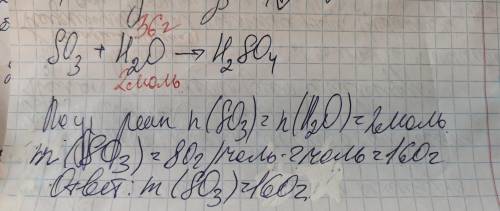 36г
SO₃ + H₂O → H₂SO₄
2моль
По ур. реак n(SO₃)=n(H₂O)=2моль
m(SO₃)=80г/моль·2моль=160г
Ответ: m(SO₃)=160г.